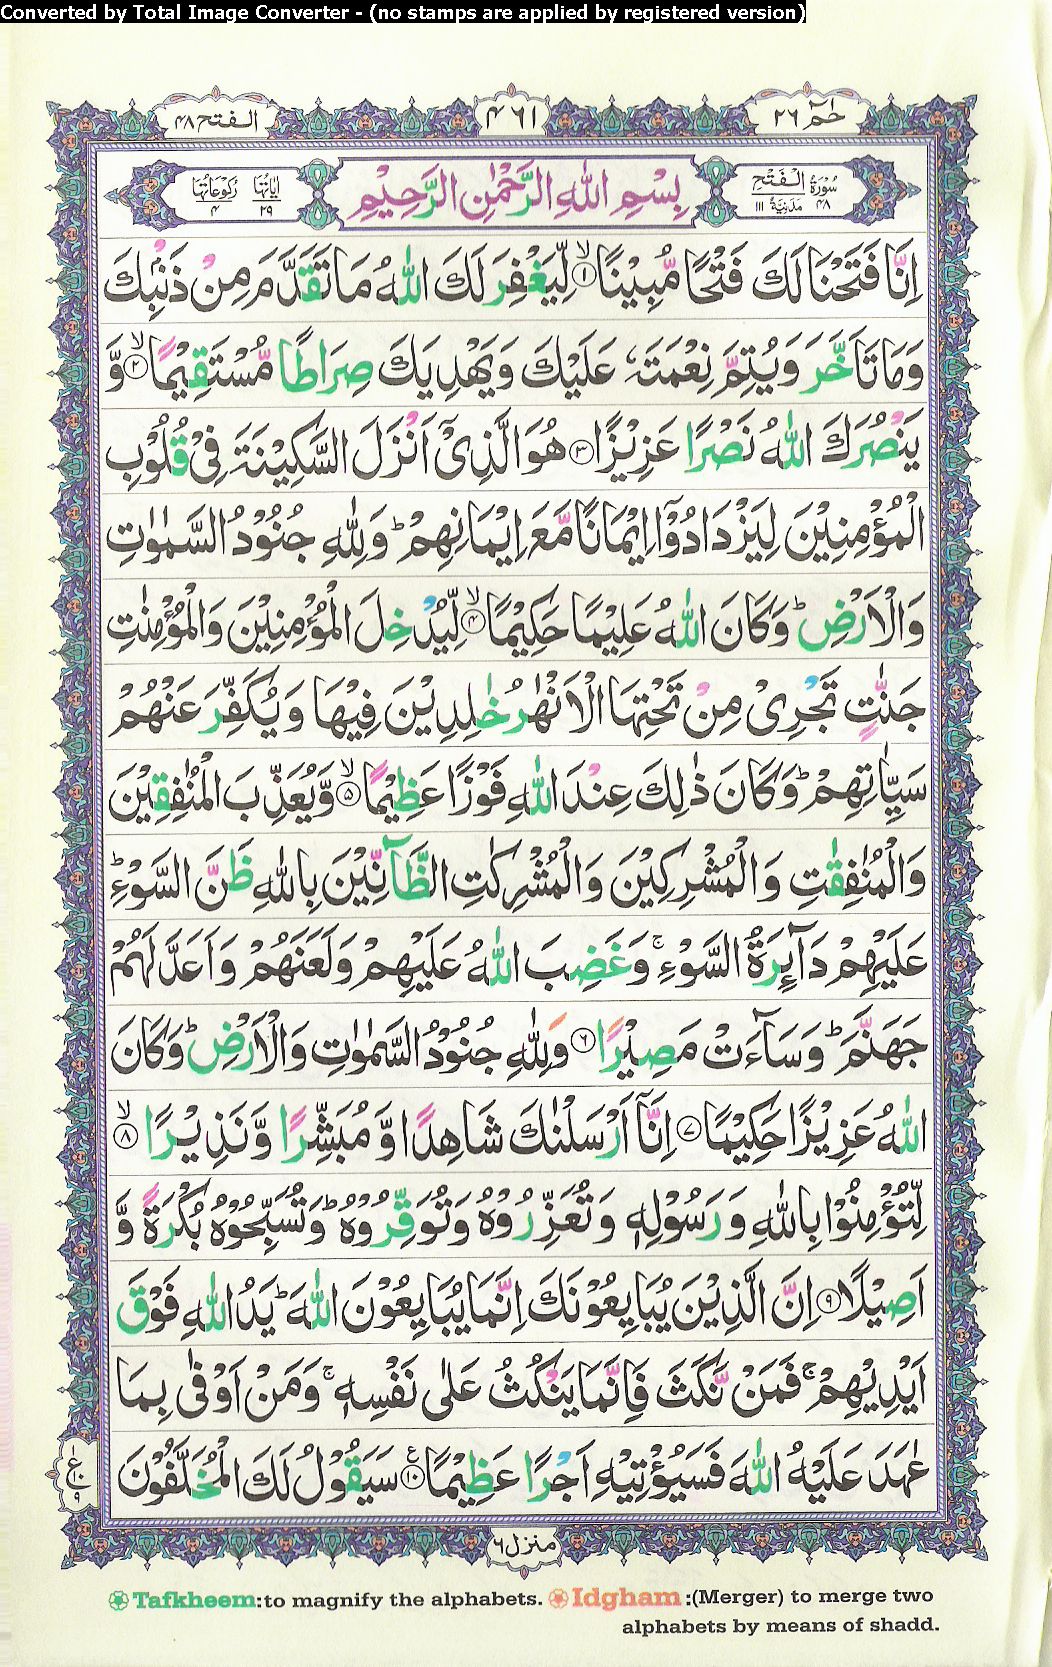 Converted by Total Image Converter - (no stamps are applied by registered version)
حٰمٓ ٢٦
۴٦١
الفتح ۴٨
سُوْرَةُ الْفَتْحِ
۴٨ مَدَنِيَّةٌ ١١١
بِسْمِ اللّٰهِ الرَّحْمٰنِ الرَّحِيْمِ
اٰيَاتُهَا رُكُوْعَاتُهَا
٢٩ ۴
اِنَّا فَتَحْنَا لَكَ فَتْحًا مُّبِيْنًا ۙ‏﴿۱﴾ لِّيَغْفِرَ لَكَ اللّٰهُ مَا تَقَدَّمَ مِنْ ذَنْۢبِكَ
وَمَا تَاَخَّرَ وَيُتِمَّ نِعْمَتَهٗ عَلَيْكَ وَيَهْدِيَكَ صِرَاطًا مُّسْتَقِيْمًا ۙ‏﴿۲﴾ وَّ
يَنْصُرَكَ اللّٰهُ نَصْرًا عَزِيْزًا ﴿۳﴾ هُوَ الَّذِيْۤ اَنْزَلَ السَّكِيْنَةَ فِيْ قُلُوْبِ
الْمُؤْمِنِيْنَ لِيَزْدَادُوْۤا اِيْمَانًا مَّعَ اِيْمَانِهِمْ ؕ وَلِلّٰهِ جُنُوْدُ السَّمٰوٰتِ
وَالْاَرْضِ ؕ وَكَانَ اللّٰهُ عَلِيْمًا حَكِيْمًا ۙ‏﴿۴﴾ لِّيُدْخِلَ الْمُؤْمِنِيْنَ وَالْمُؤْمِنٰتِ
جَنّٰتٍ تَجْرِيْ مِنْ تَحْتِهَا الْاَنْهٰرُ خٰلِدِيْنَ فِيْهَا وَيُكَفِّرَ عَنْهُمْ
سَيِّاٰتِهِمْ ؕ وَكَانَ ذٰلِكَ عِنْدَ اللّٰهِ فَوْزًا عَظِيْمًا ۙ‏﴿۵﴾ وَّيُعَذِّبَ الْمُنٰفِقِيْنَ
وَالْمُنٰفِقٰتِ وَالْمُشْرِكِيْنَ وَالْمُشْرِكٰتِ الظَّآنِّيْنَ بِاللّٰهِ ظَنَّ السَّوْءِ ؕ
عَلَيْهِمْ دَآئِرَةُ السَّوْءِ ۚ وَغَضِبَ اللّٰهُ عَلَيْهِمْ وَلَعَنَهُمْ وَاَعَدَّ لَهُمْ
جَهَنَّمَ ؕ وَسَآءَتْ مَصِيْرًا ﴿۶﴾ وَلِلّٰهِ جُنُوْدُ السَّمٰوٰتِ وَالْاَرْضِ ؕ وَكَانَ
اللّٰهُ عَزِيْزًا حَكِيْمًا ﴿۷﴾ اِنَّاۤ اَرْسَلْنٰكَ شَاهِدًا وَّمُبَشِّرًا وَّنَذِيْرًا ۙ‏﴿۸﴾
لِّتُؤْمِنُوْا بِاللّٰهِ وَرَسُوْلِهٖ وَتُعَزِّرُوْهُ وَتُوَقِّرُوْهُ ؕ وَتُسَبِّحُوْهُ بُكْرَةً وَّ
اَصِيْلًا ﴿۹﴾ اِنَّ الَّذِيْنَ يُبَايِعُوْنَكَ اِنَّمَا يُبَايِعُوْنَ اللّٰهَ ؕ يَدُ اللّٰهِ فَوْقَ
اَيْدِيْهِمْ ۚ فَمَنْ نَّكَثَ فَاِنَّمَا يَنْكُثُ عَلٰى نَفْسِهٖ ۚ وَمَنْ اَوْفٰى بِمَا
عٰهَدَ عَلَيْهُ اللّٰهَ فَسَيُؤْتِيْهِ اَجْرًا عَظِيْمًا ﴿۱۰﴾ سَيَقُوْلُ لَكَ الْمُخَلَّفُوْنَ
ع
١٠
٩
منزل ٦
Tafkheem:to magnify the alphabets. Idgham :(Merger) to merge two
alphabets by means of shadd.